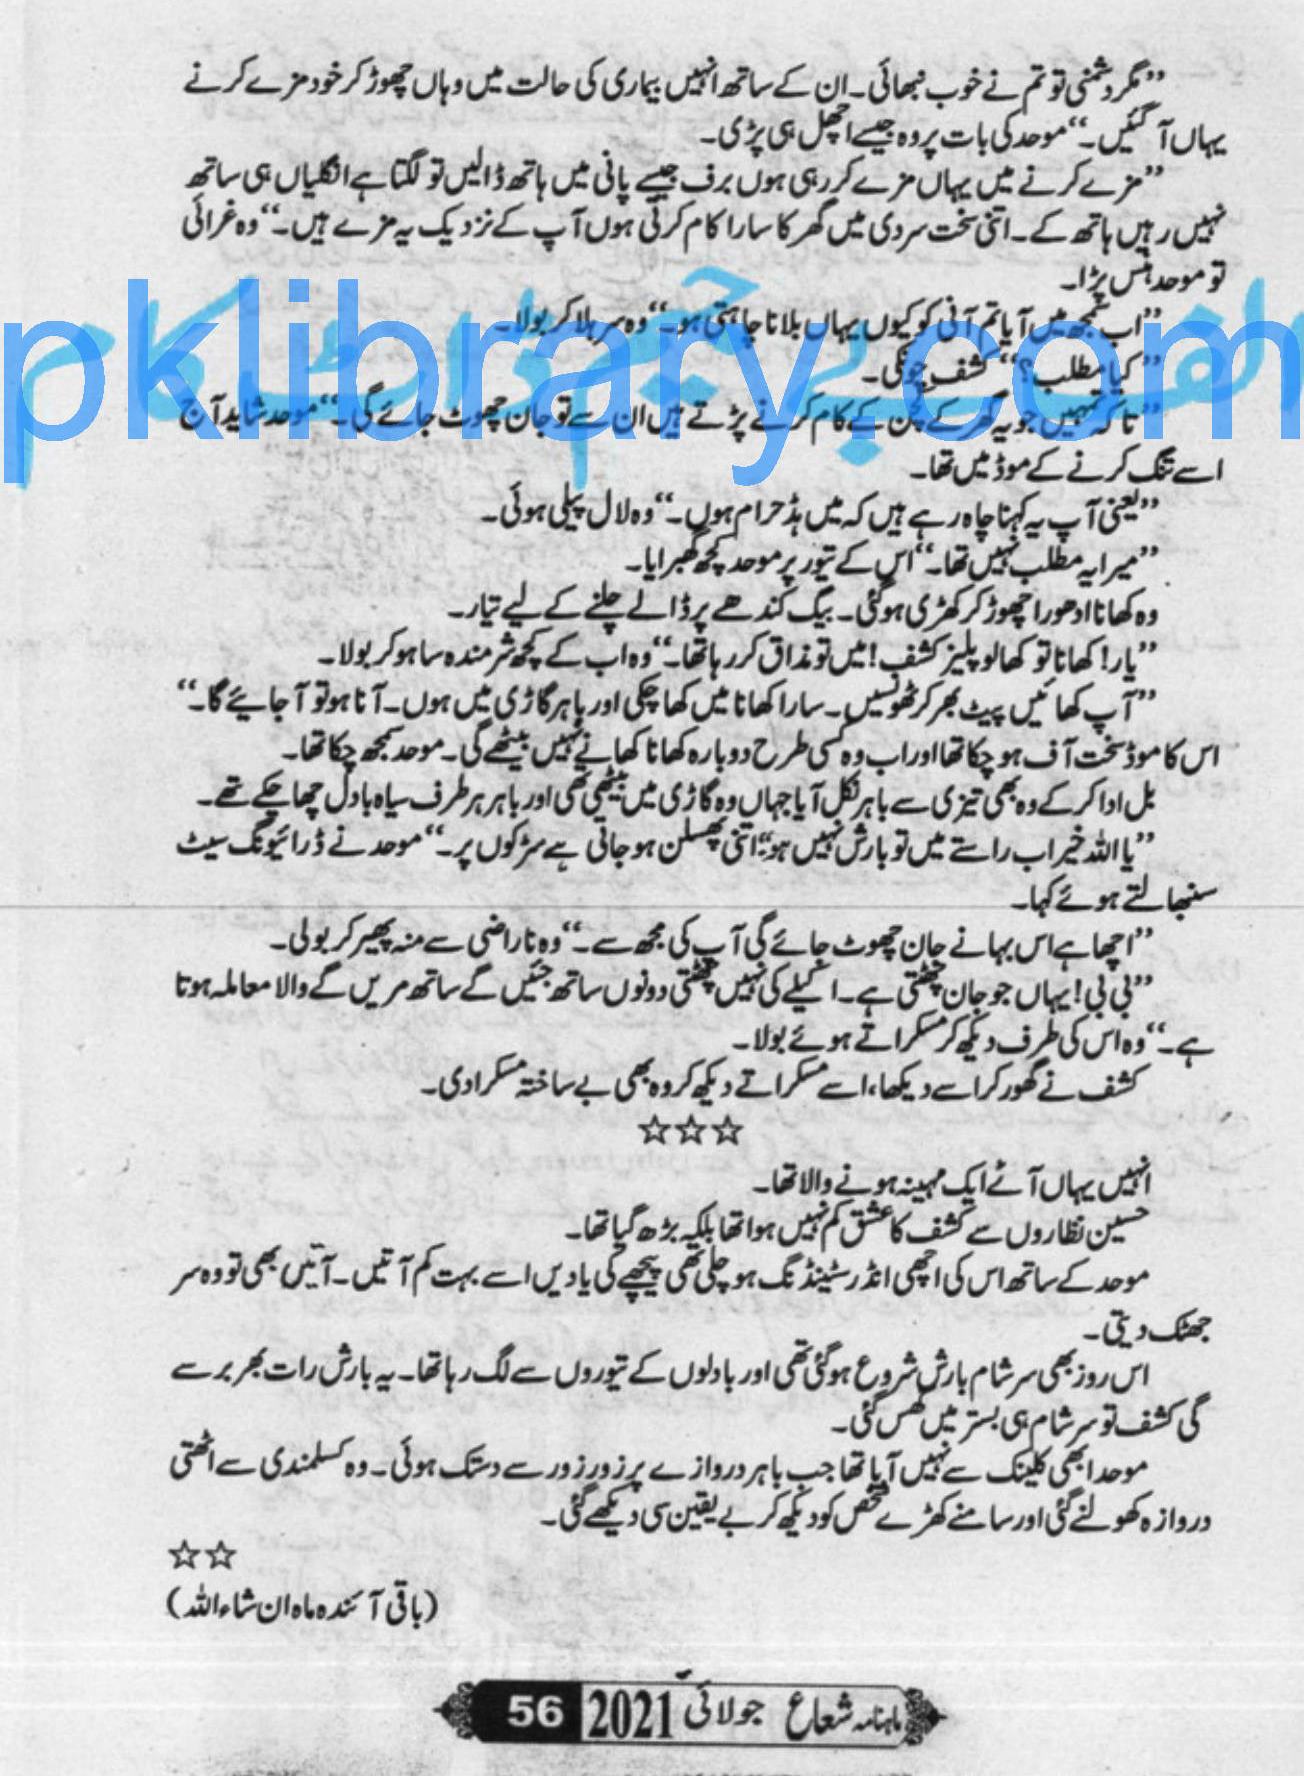 ”مگر دشمنی تو تم نے خوب نبھائی۔ ان کے ساتھ انہیں بیماری کی حالت میں وہاں چھوڑ کر خود مزے کرنے
یہاں آ گئیں۔“ موحد کی بات پر وہ جیسے اچھل ہی پڑی۔
”مزے کرنے میں یہاں مزے کر رہی ہوں برف جیسے پانی میں ہاتھ ڈالیں تو لگتا ہے انگلیاں ہی ساتھ
نہیں رہیں ہاتھ کے۔ اتنی سخت سردی میں گھر کا سارا کام کرتی ہوں آپ کے نزدیک یہ مزے ہیں۔“ وہ غرائی
تو موحد ہنس پڑا۔
”اب سمجھ میں آیا تم آنی کو کیوں یہاں بلانا چاہتی ہو۔“ وہ سر ہلا کر بولا۔
pklibrary.com
”کیا مطلب؟“ کشف چونکی۔
”تاکہ تمہیں جو یہ گھر کے کچن کے کام کرنے پڑتے ہیں ان سے تو جان چھوٹ جائے گی۔“ موحد شاید آج
اسے تنگ کرنے کے موڈ میں تھا۔
”یعنی آپ یہ کہنا چاہ رہے ہیں کہ میں ہڈ حرام ہوں۔“ وہ لال پیلی ہوئی۔
”میرا یہ مطلب نہیں تھا۔“ اس کے تیور پر موحد کچھ گھبرایا۔
وہ کھانا ادھورا چھوڑ کر کھڑی ہو گئی۔ بیگ کندھے پر ڈالے چلنے کے لیے تیار۔
”یار! کھانا تو کھا لو پلیز کشف! میں تو مذاق کر رہا تھا۔“ وہ اب کے کچھ شرمندہ سا ہو کر بولا۔
”آپ کھائیں پیٹ بھر کر ٹھونسیں۔ سارا کھانا میں کھا چکی اور باہر گاڑی میں ہوں۔ آنا ہو تو آ جائیے گا۔“
اس کا موڈ سخت آف ہو چکا تھا اور اب وہ کسی طرح دوبارہ کھانا کھانے نہیں بیٹھے گی۔ موحد سمجھ چکا تھا۔
بل ادا کر کے وہ بھی تیزی سے باہر نکل آیا جہاں وہ گاڑی میں بیٹھی تھی اور باہر ہر طرف سیاہ بادل چھا چکے تھے۔
”یا اللہ خیر اب راستے میں تو بارش نہیں ہو“ اتنی پھسلن ہو جاتی ہے سڑکوں پر۔“ موحد نے ڈرائیونگ سیٹ
سنبھالتے ہوئے کہا۔
”اچھا ہے اس بہانے جان چھوٹ جائے گی آپ کی مجھ سے۔“ وہ ناراضی سے منہ پھیر کر بولی۔
”بی بی! یہاں جو جان چھٹتی ہے۔ اکیلے کی نہیں چھٹتی دونوں ساتھ جئیں گے ساتھ مریں گے والا معاملہ ہوتا
ہے۔“ وہ اس کی طرف دیکھ کر مسکراتے ہوئے بولا۔
کشف نے گھور کر اسے دیکھا، اسے مسکراتے دیکھ کر وہ بھی بے ساختہ مسکرا دی۔
☆☆☆
انہیں یہاں آئے ایک مہینہ ہونے والا تھا۔
حسین نظاروں سے کشف کا عشق کم نہیں ہوا تھا بلکہ بڑھ گیا تھا۔
موحد کے ساتھ اس کی اچھی انڈرسٹینڈنگ ہو چلی تھی پیچھے کی یادیں اسے بہت کم آتیں۔ آتیں بھی تو وہ سر
جھٹک دیتی۔
اس روز بھی سر شام بارش شروع ہو گئی تھی اور بادلوں کے تیوروں سے لگ رہا تھا۔ یہ بارش رات بھر برسے
گی کشف تو سر شام ہی بستر میں گھس گئی۔
موحد ابھی کلینک سے نہیں آیا تھا جب باہر دروازے پر زور زور سے دستک ہوئی۔ وہ کسلمندی سے اٹھتی
دروازہ کھولنے گئی اور سامنے کھڑے شخص کو دیکھ کر بے یقین سی دیکھے گئی۔
☆☆
(باقی آئندہ ماہ ان شاء اللہ)
ماہنامہ شعاع جولائی 2021 56